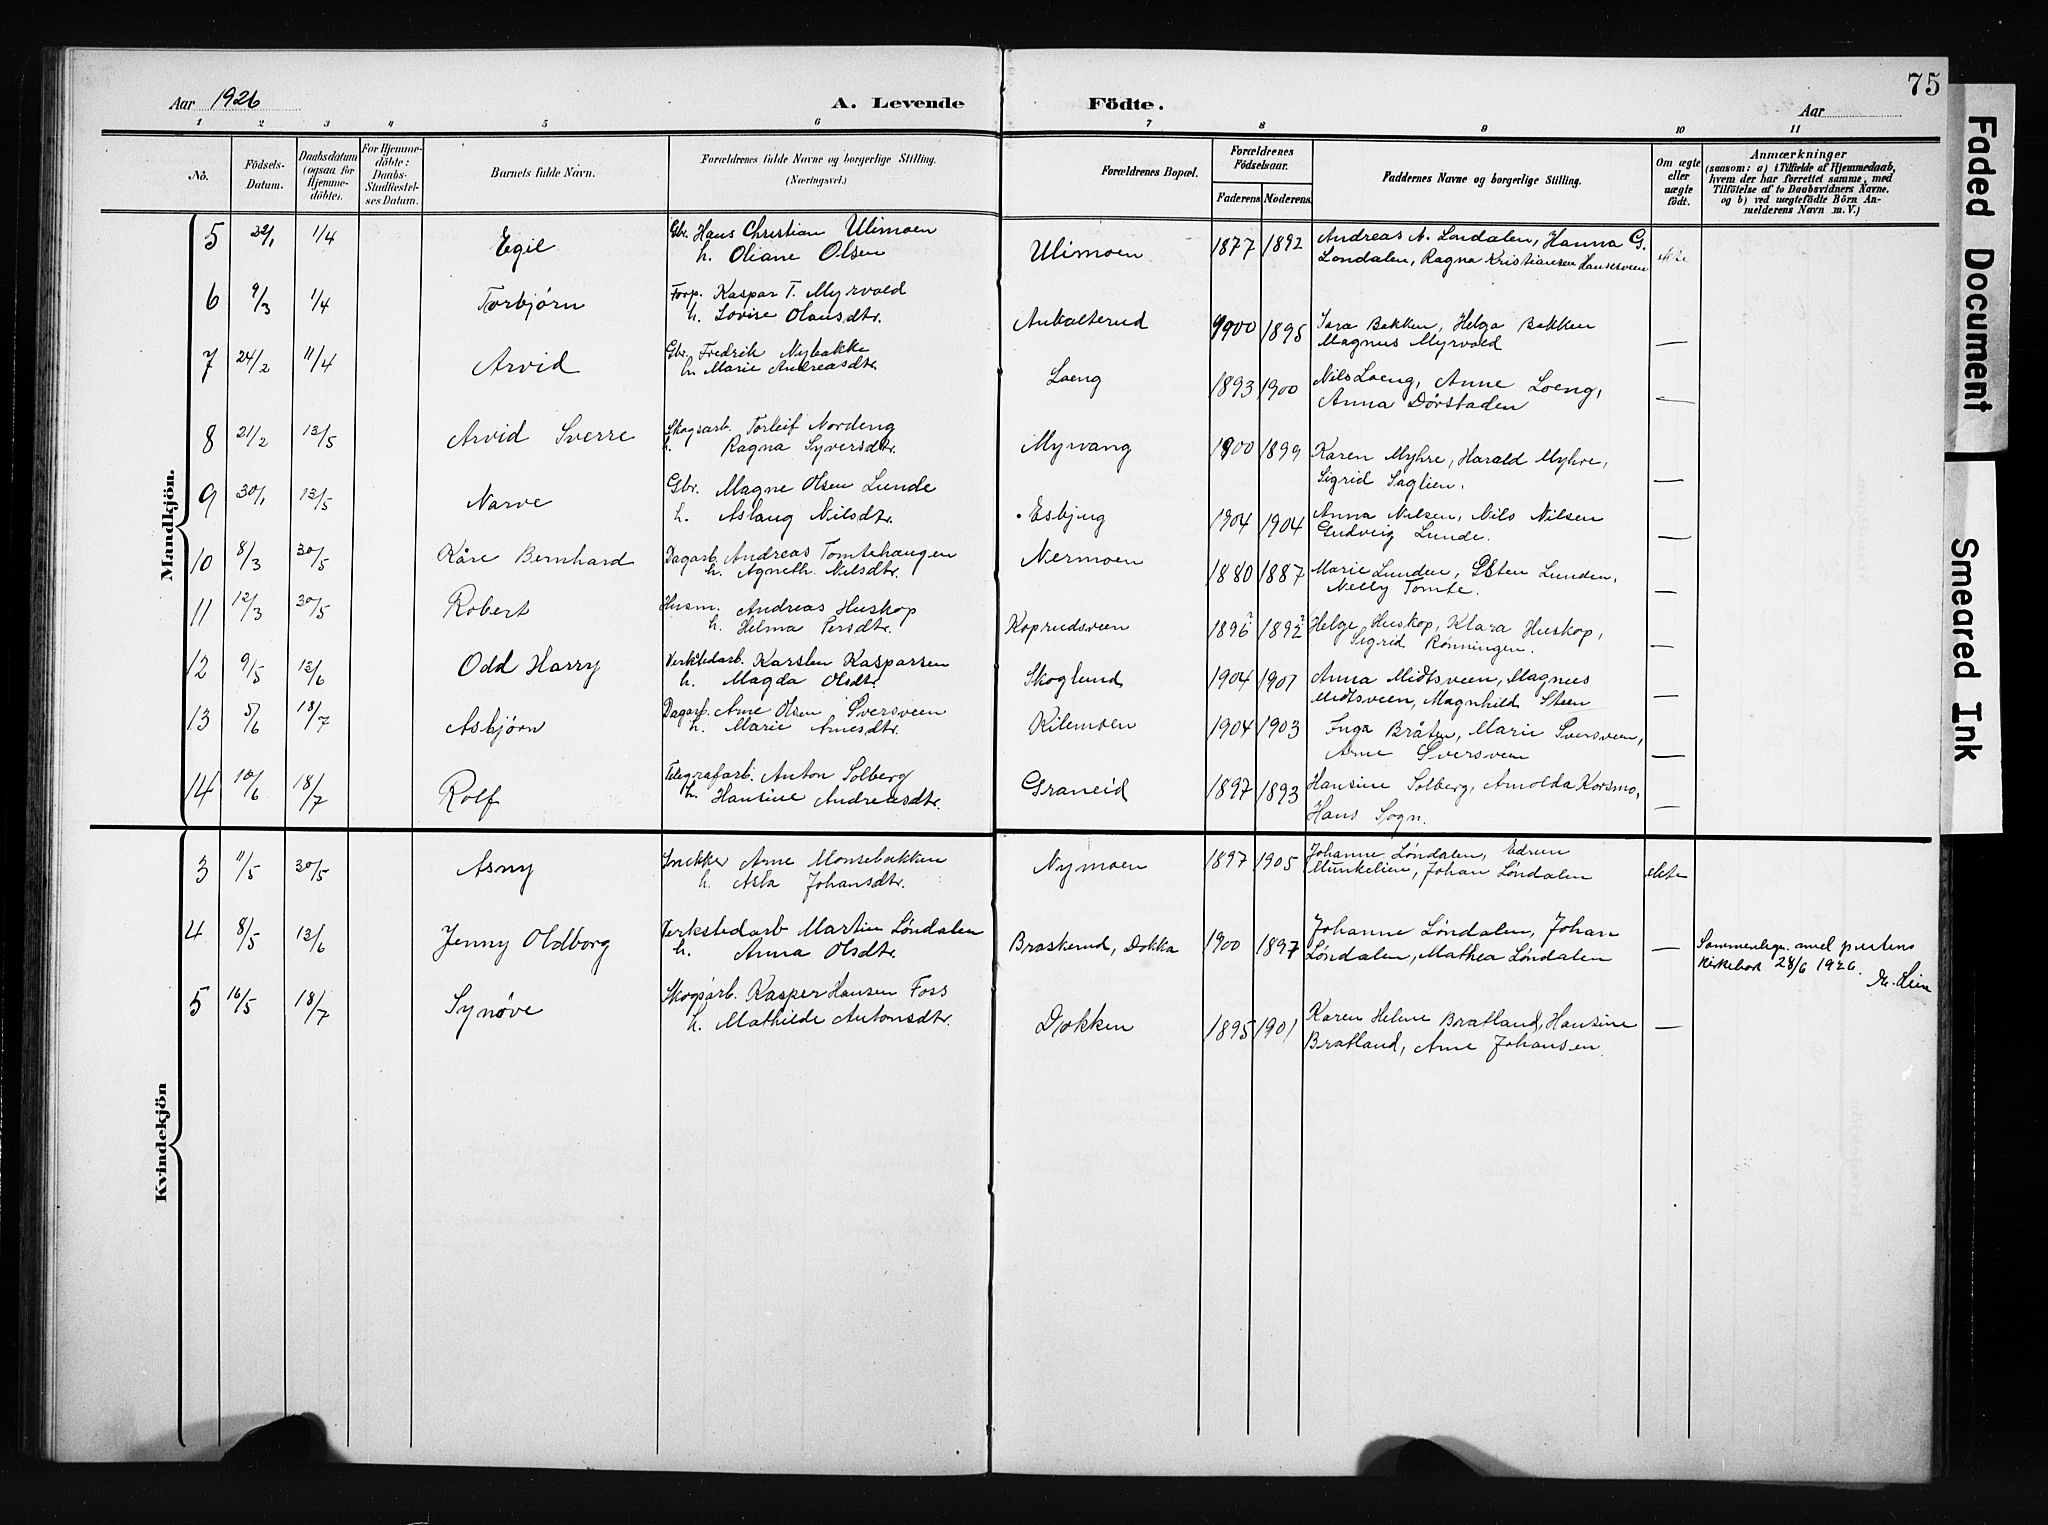 75
Aar 1926
A. Levende Födte.
Aar
1 2 3 4 5 6 7 8 9 10 11
No.
Födsels-Datum.
Daabsdatum (ogsaa for Hjemmedöbte).
For Hjemmedöbte: Daabs-Stadfæstelses Datum.
Barnets fulde Navn.
Forældrenes fulde Navne og borgerlige Stilling. (Næringsvei.)
Forældrenes Bopæl.
Forældrenes Födselsaar.
Faderens Moderens
Faddernes Navne og borgerlige Stilling.
Om ægte eller uægte födt.
Anmærkninger
(saasom: a) i Tilfælde af Hjemmedaab, hvem der har forrettet samme, med Tilföielse af to Daabsvidners Navne. og b) ved uægtefödte Börn Anmelderens Navn m. V.)
Mandkjön.
5 22/1 1/4 Egil Gbr. Hans Christian Ulimoen
h. Oliane Olsen Ulimoen 1877 1892 Andreas N. Londalen, Hanna G.
Londalen, Ragna Kristiansen Hansesveen ekte
6 9/3 1/4 Torbjørn Forp. Kaspar T. Myrvold
h. Lovise Olausdtr. 1900 1895 Sara Bakken, Helga Bakken
Magnus Myrvold —
7 24/2 11/4 Arvid Gbr. Fredrik Nybakke
h. Marie Andreasdtr. Loeng 1893 1900 Nils Loeng, Anne Loeng,
Anna Dørstaden —
8 21/2 13/5 Arvid Sverre Skogsarb. Torleif Nordeng
h. Ragna Syversdtr. Myrvang 1900 1899 Karen Myhre, Harald Myhre,
Sigrid Saglien. —
9 30/1 13/5 Narve Gbr. Magne Olsen Lunde
h. Aslaug Nilsdtr. Esbjug 1904 1904 Anna Nilsen, Nils Nilsen
Gudveig Lunde. —
10 8/3 30/5 Kåre Bernhard Dagarb. Andreas Tomtehaugen
h. Agneth. Nilsdtr. Nermoen 1880 1887 Marie Lunden, Lunden,
Nelly Tomte. —
11 12/3 30/5 Robert Husm. Andreas Huskop
h. Helma Persdtr. Koprudsveen 1896 1892 Helge Huskop, Klara Huskop,
Sigrid Rønningen. —
12 9/5 13/6 Odd Harry Verkstedarb. Karsten Kasparsen
h. Magda Olsdtr. Skoglund 1904 1901 Anna Midtsveen, Magnus
Midtsveen, Magnhild Steen —
13 5/6 18/7 Asbjørn Dagarb. Arne Olsen Sversveen
h. Marie Arnesdtr. Kilemoen 1904 1903 Inga Bråten, Marie Sversveen,
Arne Sversveen —
14 10/6 18/7 Rolf Telegrafarb. Anton Solberg
h. Hansine Andreasdtr. Graneid 1897 1893 Hansine Solberg, Arnolda Korsmo,
Hans Sogn. —
Kvindekjön
3 11/5 30/5 Asny Snekker Arne Monsebakken
h. Asta Johansdtr. Nymoen 1897 1905 Johanne Løndalen, Edrun
Munkelien, Johan Løndalen ekte
4 8/5 13/6 Jenny Oldborg Verkstedarb Martin Løndalen
h. Anna Olsdtr. Braskerud, Dokka 1900 1897 Johanne Løndalen, Johan
Løndalen, Mathea Løndalen — Sammenlign. med prestens
kirkebok 28/6 1926.
5 16/5 18/7 Synøve Skogsarb. Kasper Hansen Foss
h. Mathilde Antonsdtr. Dokken 1895 1901 Karen Helene Bratland, Hansine
Bratland, Arne Johansen. —
Faded Document
Smeared Ink